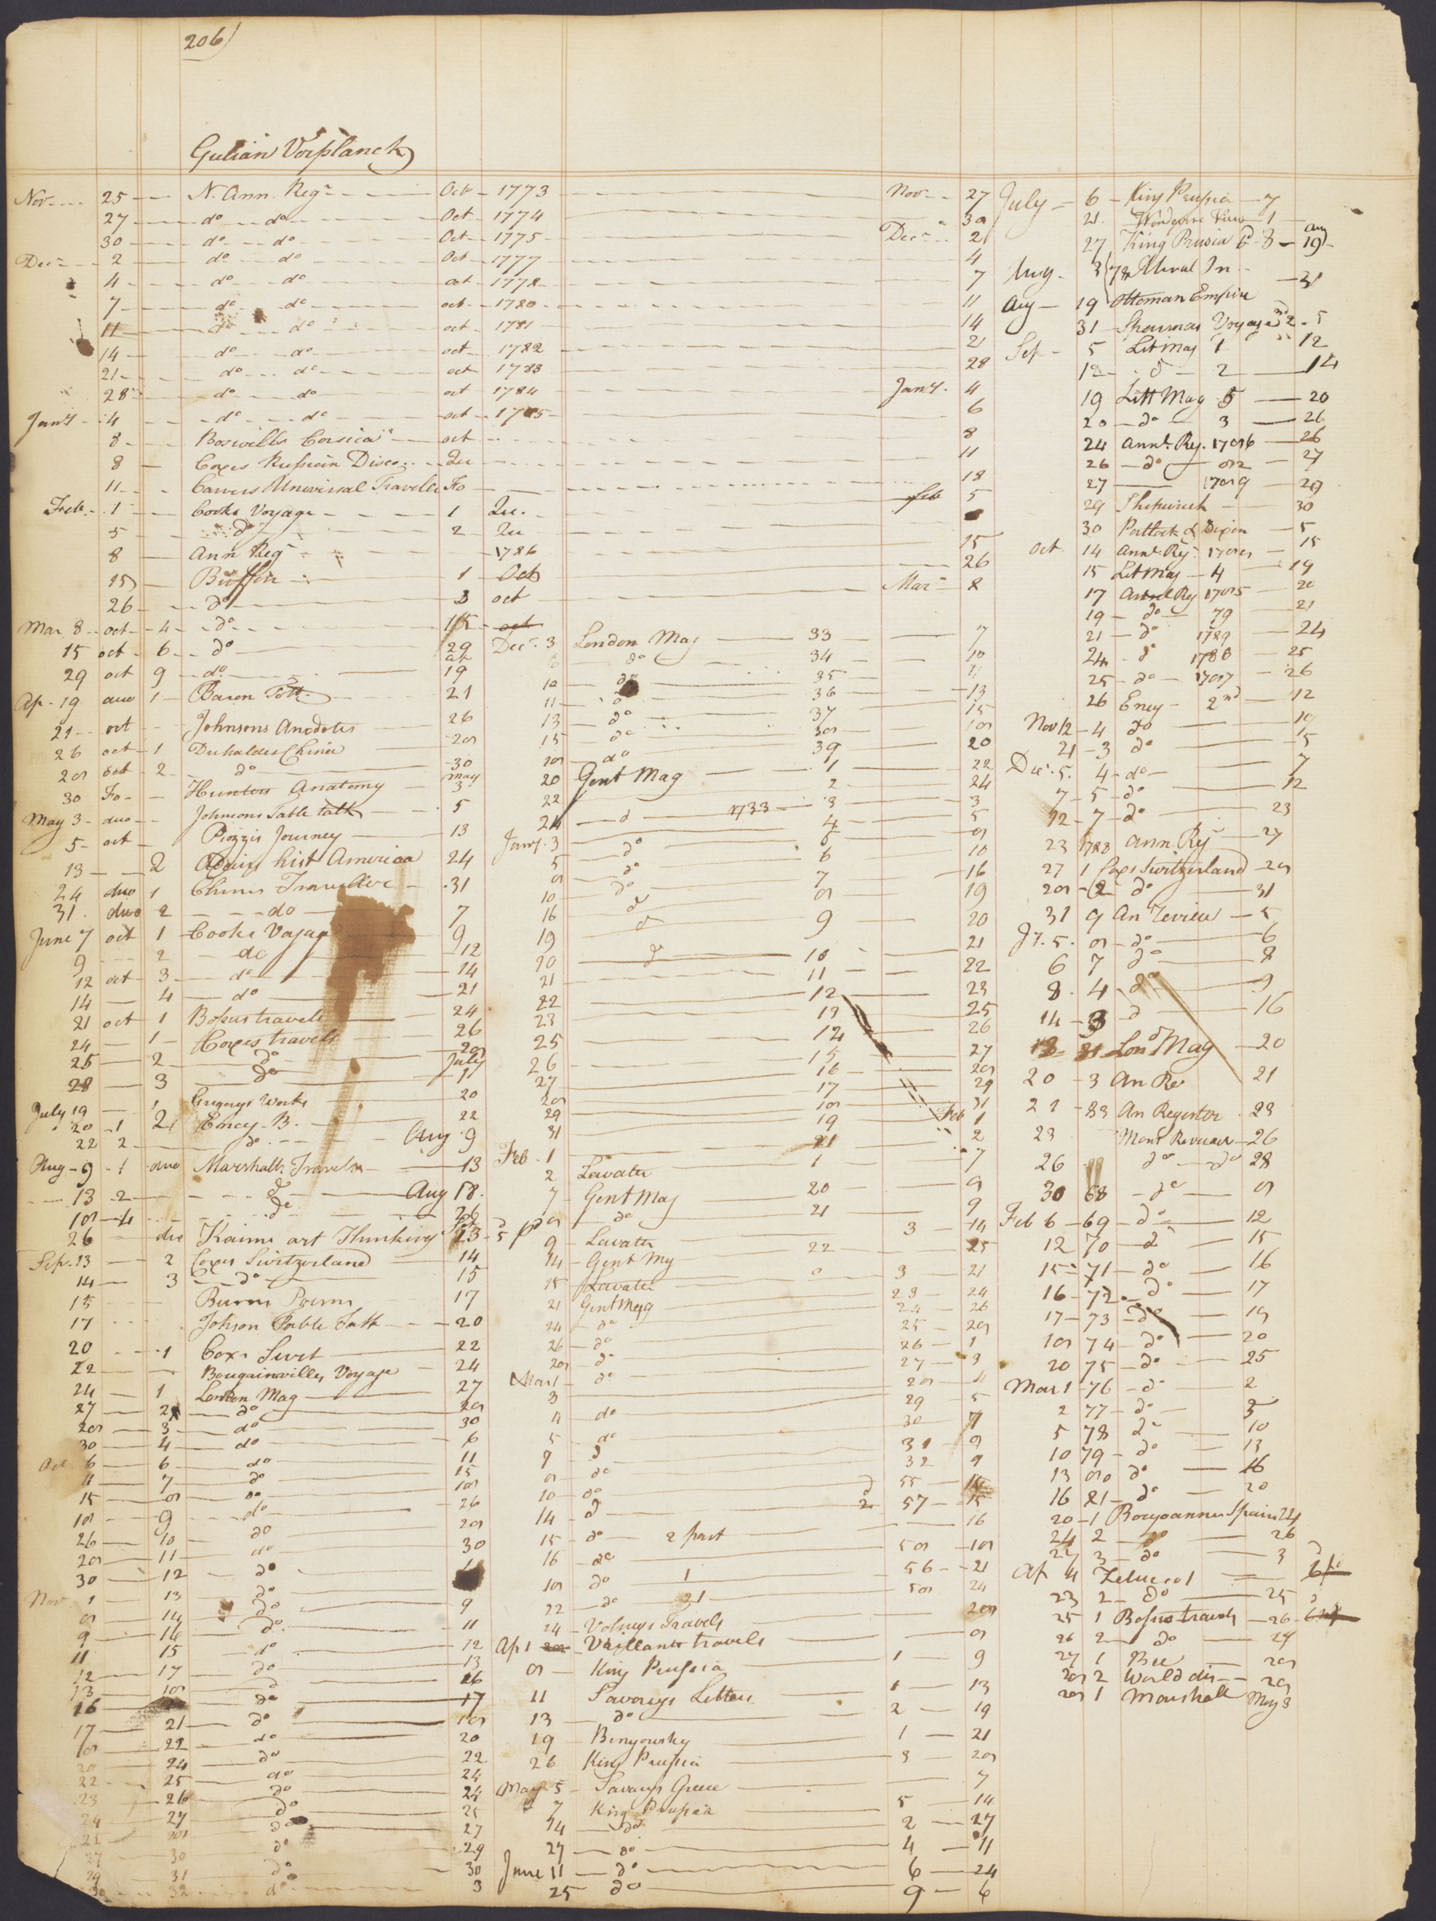 206)
Gulian Verplanck
Nov 25 N. Ann Regr Oct 1773 Nov 27
27 do do Oct 1774 30
30 do do Oct 1775 Decr 2
Decr 2 do do Oct 1777 4
4 do do oct 1778 7
7 do do oct 1780 11
11 do do oct 1781 14
14 do do oct 1782 21
21 do do oct 1783 28
28 do do oct 1784 Jany 4
Jany 4 do do oct 1785 6
8 Boswells Corsica oct 8
8 Coxes Russian Disco Qu 11
11 Carvers Universal Traveller Fo 18
Feb 1 Cooks Voyage 1 Qu. Feb 5
5 do 2 Qu
8 Ann Regr 1786 15
15 Buffon 1 Oct 26
26 do 3 oct Mar 8
Mar 8 oct 4 do 15
15 oct 6 do 29
29 oct 9 do 19
Ap. 19 duo 1 Baron Tott 21
21 oct Johnsons Anecdotes 26
26 oct 1 Duhaldes China 28
28 oct 2 do 30
30 Fo Hunters Anatomy May 3
May 3 duo Johnsons Table talk 5
5 oct Piozzis Journey 13
13 2 Adairs hist America 24
24 duo 1 Chinese Traveller 31
31 duo 2 do 7
June 7 oct 1 Cooks Voyage 9
9 2 do 12
12 oct 3 do 14
14 4 do 21
21 oct 1 Bofus travels 24
24 1 Coxes travels 26
25 2 do 28
28 3 do July 1
July 19 1 Gregorys Works 20
20 1 Ency. B. 22
22 2 do Aug 9
Aug 9 1 duo Marshalls Travels 13
13 2 do Aug 18
18 4 do 26
26 duo Kaims art Thinking 13
Sep. 13 2 Coxes Switzerland 14
14 3 do 15
15 Burns Poems 17
17 Johson Table Talk 20
20 1 Coxs Swit 22
22 Bougainvilles Voyage 24
24 1 London Mag 27
27 2 do 28
28 3 do 30
30 4 do 6
Oct 6 6 do 11
11 7 do 15
15 8 do 18
18 9 do 26
26 10 do 28
28 11 do 30
30 12 do
Nov 1 13 do
8 14 do 9
9 14 do 11
11 15 do 12
12 17 do 13
13 18 do 16
16 do 17
17 21 do 18
18 22 do 20
20 24 do 22
22 25 do 24
23 26 do 24
24 27 do 25
25 28 do 27
27 30 do 29
29 31 do 30
30 32 do 3
Decr 3 London Mag 33 7
do 34 10
10 do 35
11 do 36 13
13 do 37 15
15 do 38 18
18 do 39 20
20 Gent Mag 1 22
22 2 24
24 d 1733 3 3
Jany 3 do 4 5
5 do 5 8
8 do 6 10
10 do 7 16
16 d 8 19
19 d 9 20
20 d 10 21
21 11 22
22 12 23
23 13 25
25 14 26
26 15 27
27 16 28
28 17 29
29 18 31
31 19 Feb 1
Feb 1 21 2
2 Lavater 1 7
7 Gent Mag 20 8
8 do 21 9
9 Lavater 3 14
14 Gent Mg 22 15
15 Lavater 3 21
21 Gent Mag 23 24
24 do 24 26
26 do 25 28
28 do 26 1
Mar 1 do 27 3
3 28 4
4 do 29 5
5 do 30 7
9 d 31 9
8 do 32 9
10 do 55 14
14 d 2 57 15
15 do 2 part 16
16 do 58 18
18 do 1 56 21
22 do 21 58 24
24 Volneys Travels 28
Ap 1 Vaillants travels 8
8 King Prussia 1 9
11 Savarys Letters 1 13
13 do 2 19
19 Benyowsky 1 21
26 King Prussia 3 28
May 5 Savarys Greece 7
7 King Prussia 5 14
14 do 2 27
27 do 4 11
June 11 do 6 24
25 do 9 6
July 6 King Prussia 7
21 1
27 King Prusia 6 8 Aug 19
Aug 3 In 31
Aug 19 Ottoman Empire
31 Sparmans Voyage 2 5
Sep 5 Lit Mag 1 12
12 d 2 14
19 Litt Mag 5 20
20 do 3 26
24 Annl Reg. 1786 26
26 do 82 27
27 1789 29
29 30
30 Portlock & Dixon 5
Oct 14 Annl Reg. 15
15 Lit Mag 4 19
17 Annl Reg 1785 20
19 do 79 21
21 do 1789 24
24 d 1788 25
25 do 1787 26
26 Ency 2nd 12
Nov 12 4 do 19
21 3 do 5
Decr 5 4 do 7
7 5 do 12
12 7 do 23
23 788 Ann. Reg 27
27 1 Coxs Switzerland 28
28 2 do 31
31 9 An Review 5
Jy. 5 8 do 6
6 7 do 8
8 4 do 9
14 3 d 16
Lond Mag 20
20 3 An Re 21
21 83 An Register 23
23 Mont Review 26
26 do do 28
30 68 do 8
Feb 6 69 do 12
12 70 d 15
15 71 do 16
16 72 do 17
17 73 do 19
18 74 do 20
20 75 do 25
Mar 1 76 do 2
2 77 do 5
5 78 do 10
10 79 do 13
13 80 do 16
16 81 do 20
20 1 Bourgoannes Spain 24
24 2 do 26
27 3 do 3
Ap 4 Zeluco 1
23 2 do 25
25 1 Bofus travels 26
26 2 do 27
27 1 Bee 28
28 2 World dis 28
28 1 Marshall May 3